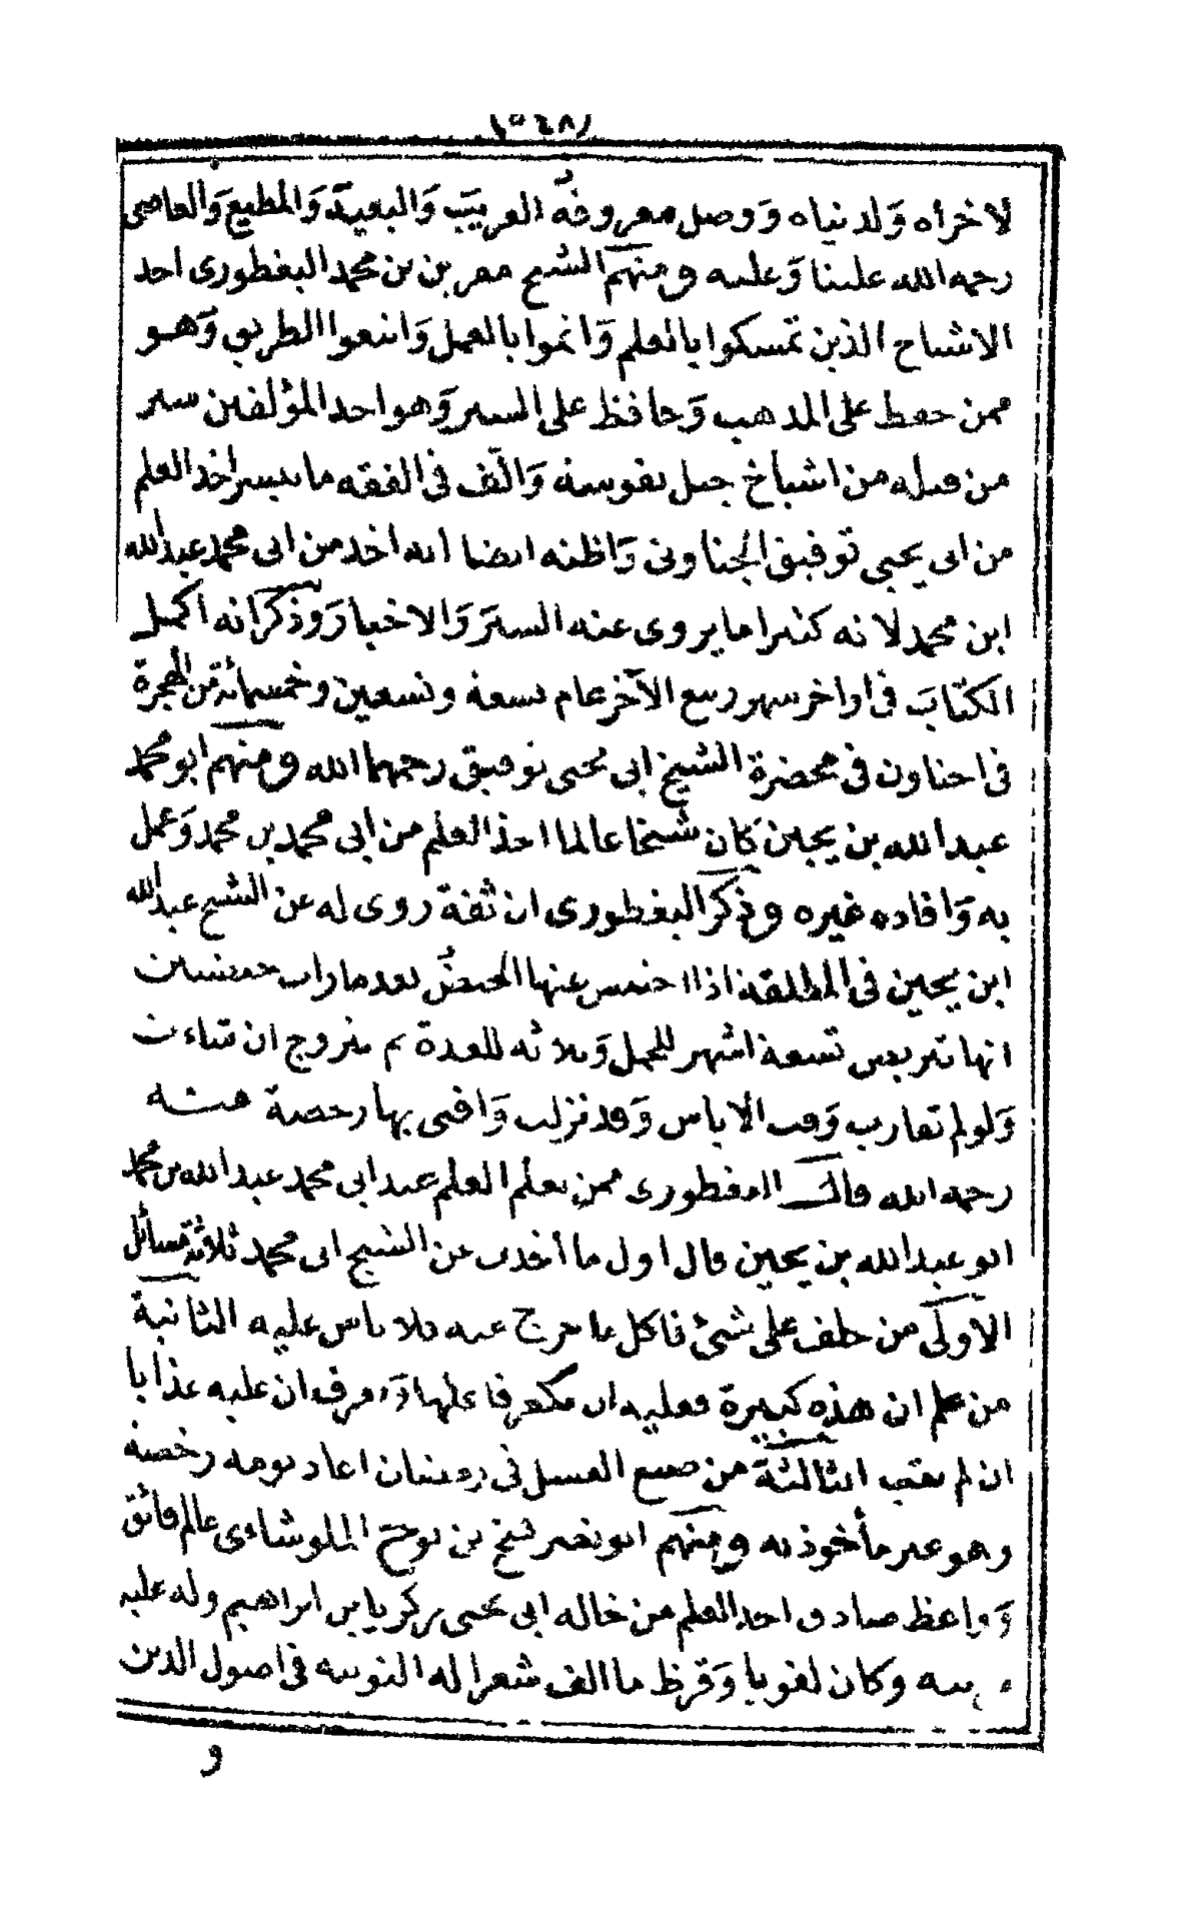 (٥٤٨)
لاخراه وَلدنياه وَوصل معروفه القريبَ وَالبعيدَ وَالمطيع وَالعاصي
رحمه الله علينا وَعليه ومنهم الشيخ مقرين بن محمد البغطوري احد
الاشياخ الذين تمسكوا بالعلم وَاتموا بالعمل وَاتبعوا الطريق وَهو
ممن حفظ على المذهب وَحافظ على السير وَهو احد المؤلفين سير
من قبله من اشياخ جبل نفوسة وَالّف في الفقه ما تيسر اخذ العلم
من ابى يحيى توفيق الجناونى وَاظنه ايضا انه اخذ من ابى محمد عبد الله
ابن محمد لانه كثيرا ما يروى عنه السيَر وَالاخبار وَذكر انه اكمل
الكتابَ في اواخر شهر ربيع الآخر عام تسعة وتسعين وخمسمائة من الهجرة
في اجناون في محضرة الشيخ ابى يحيى توفيق رحمهما الله ومنهم ابو محمد
عبد الله بن يحيين كان شيخا عالما اخذ العلم من ابى محمد بن محمد وَعمل
به وَافاده غيره وذكر البغطورى ان ثقة روى له عن الشيخ عبد الله
ابن يحيين في المطلقة اذا احتبس عنها الحيض بعد ما رات حيضتين
انها تتربص تسعة اشهر للحمل وَثلاثة للعدة ثم تتزوج ان شاءت
وَلو لم تقارب وَقت الاياس وَقد نزلت وَافتى بها رخصة منه
رحمه الله قال البغطورى ممن تعلم العلم عند ابى محمد عبد الله بن محمد
ابو عبد الله بن يحيين قال اول ما أخذت عن الشيخ ابى محمد ثلاثة مسائل
الاولى من حلف على شئ فاكل ما خرج عنه فلا باس عليه الثانية
من علم ان هذه كبيرة فعليه ان عرف ان عليه عذابا
ان لم يتب الثالثة من ضيع الغسل في رمضان اعاد يومه رخصة
وهو غير مأخوذ به ومنهم ابو نصر فتح بن نوح الملوشاءى عالم فائق
وَواعظ صادق اخذ العلم من خاله ابى يحيى زكرياء بن ابراهيم وله عليه
وكان لغويا وَقرظ ما الف شعرا له النونية في اصول الدين
و